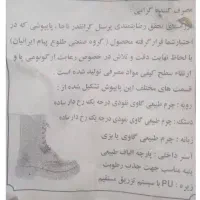 مصرف کننده گرامی
جهت تحقق رضایتمندی پرسنل گرانقدر ناجا، پاپوشی که در
اختیار شما قرار گرفته محصول (گروه صنعتی طلوع پیام ایرانیان)
با لحاظ نهایت دقت و تلاش در خصوص رعایت ارگونومی پا و
ارتقاء سطح کیفی مواد مصرفی تولید شده است
قسمت های مختلف این پاپوش تشکیل شده از:
رویه: چرم طبیعی گاوی نفوذی درجه یک رخ دار ساده
دستک: چرم طبیعی گاوی نفوذی درجه یک رخ دار ساده
زبانه: چرم طبیعی گاوی پابری
آستر داخلی: پارچه الیاف طبیعی
پنبه مناسب جهت جذب رطوبت
زیره: PU با سیستم تزریق مستقیم